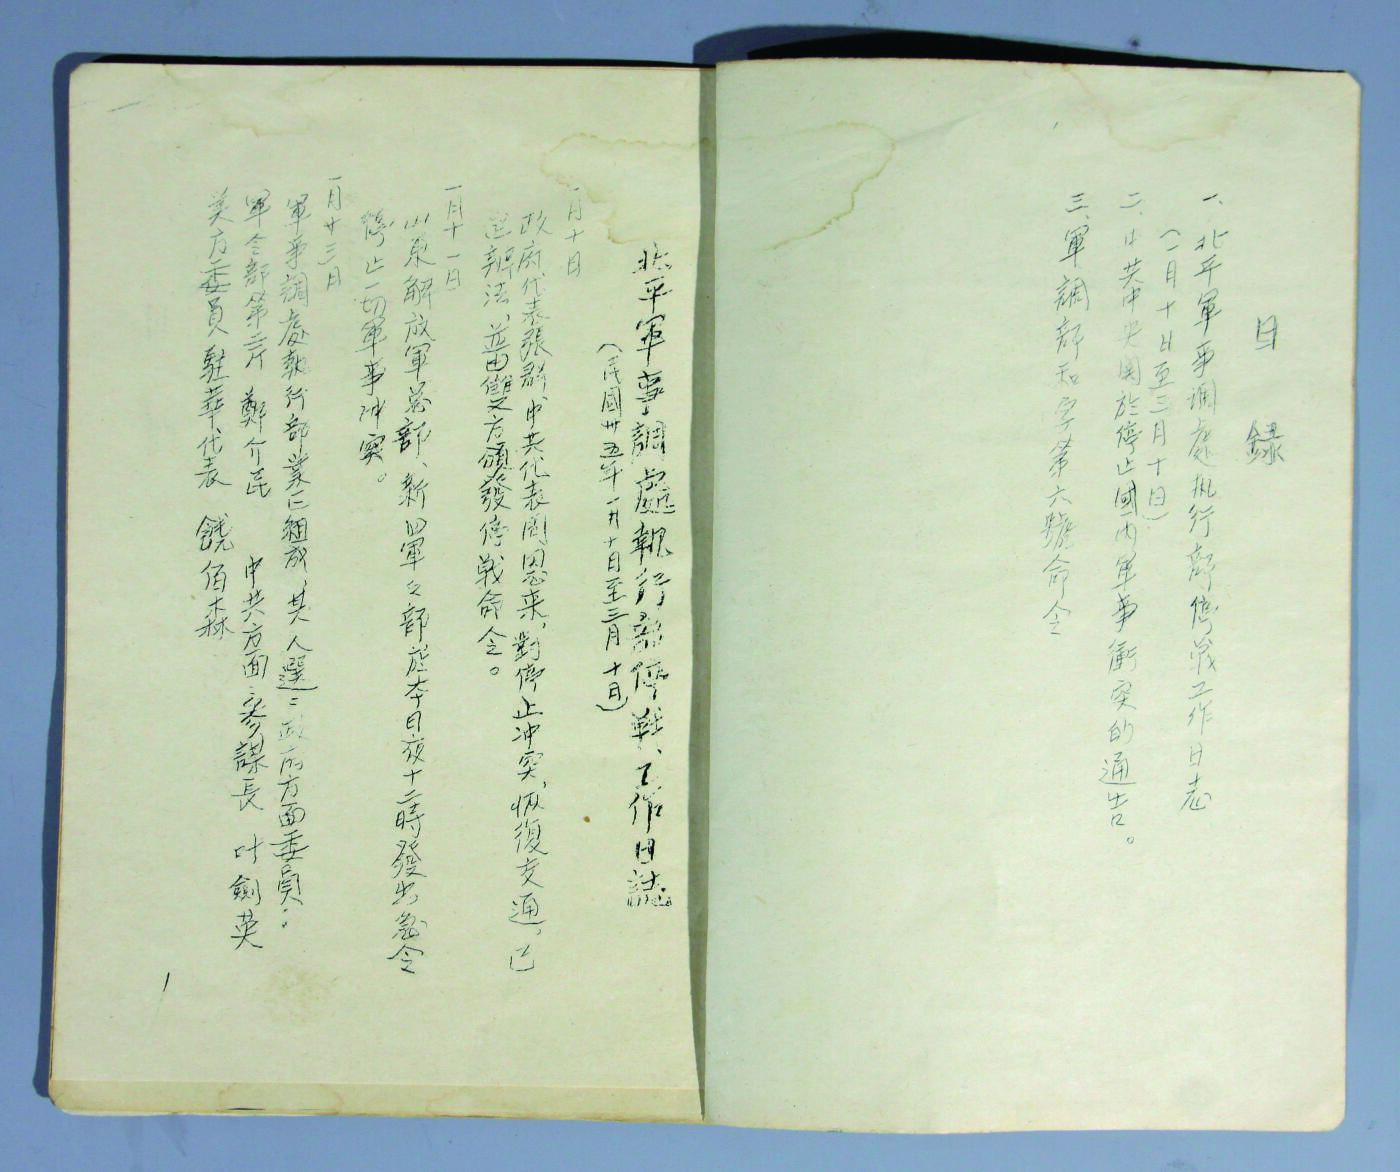 目 錄
一、北平軍事調處执行部停战工作日志
(一月十日至三月十日)
二、中共中央関於停止國内軍事衝突的通告。
三、軍調部和字第六號命令
北平軍事調處執行部停戰、工作日誌
(民國卅五年一月十日至三月十日)
一月十日
政府代表張群、中共代表周恩来,對停止冲突,恢復交通,已
辦法、並由雙方頒發停战命令。
一月十一日
山東解放軍总部、新四軍之部於本日夜十二時發出急令
停止一切軍事冲突。
一月廿三日
軍事調處執行部業已組成,其人選:政府方面委員:
軍令部第二厅 鄭介民 中共方面:参謀長 叶劍英
美方委員駐華代表 饒伯森
1